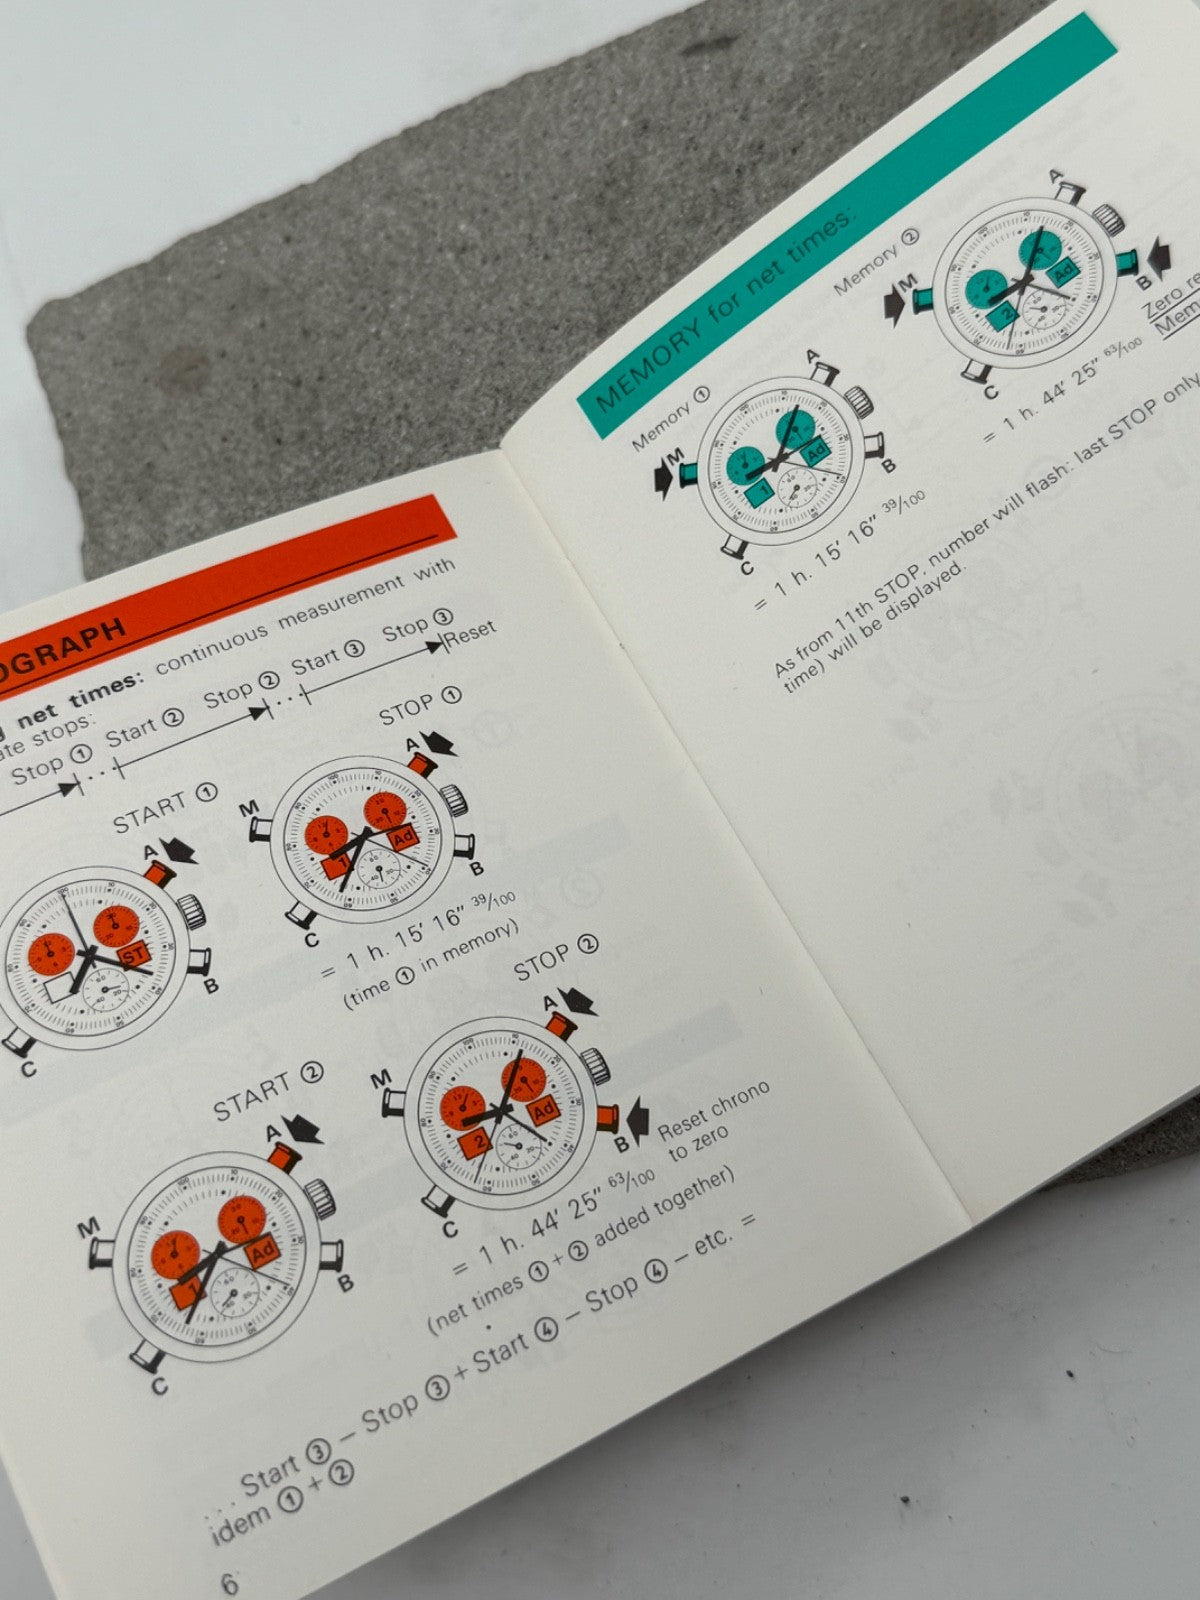 OGRAPH
net times: continuous measurement with
ate stops:
Stop ① Start ② Stop ② Start ③ Stop ③
Reset
START ①
A
B
C
ST
STOP ①
M
A
B
C
1
Ad
= 1 h. 15′ 16″ 39/100
(time ① in memory)
START ②
M
A
B
C
1
Ad
STOP ②
M
A
B
C
2
Ad
Reset chrono
to zero
= 1 h. 44′ 25″ 63/100
(net times ① + ② added together)
... Start ③ – Stop ③ + Start ④ – Stop ④ – etc. =
idem ① + ②
6
MEMORY for net times:
Memory ①
M
A
B
C
1
Ad
= 1 h. 15′ 16″ 39/100
Memory ②
M
A
B
C
2
Ad
Zero
= 1 h. 44′ 25″ 63/100
As from 11th STOP, number will flash: last STOP only
time) will be displayed.